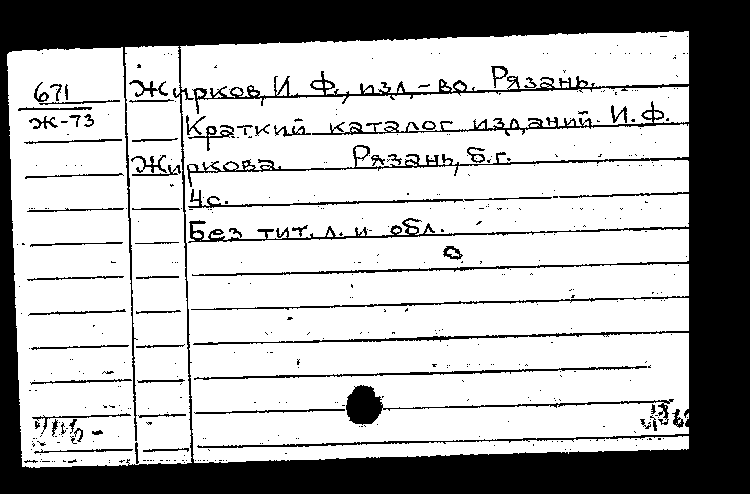 671
Ж-73
Жирков, И. Ф., изд-во. Рязань.
Краткий каталог изданий И. Ф.
Жиркова. Рязань, б. г.
4с.
Без тит. л. и обл.